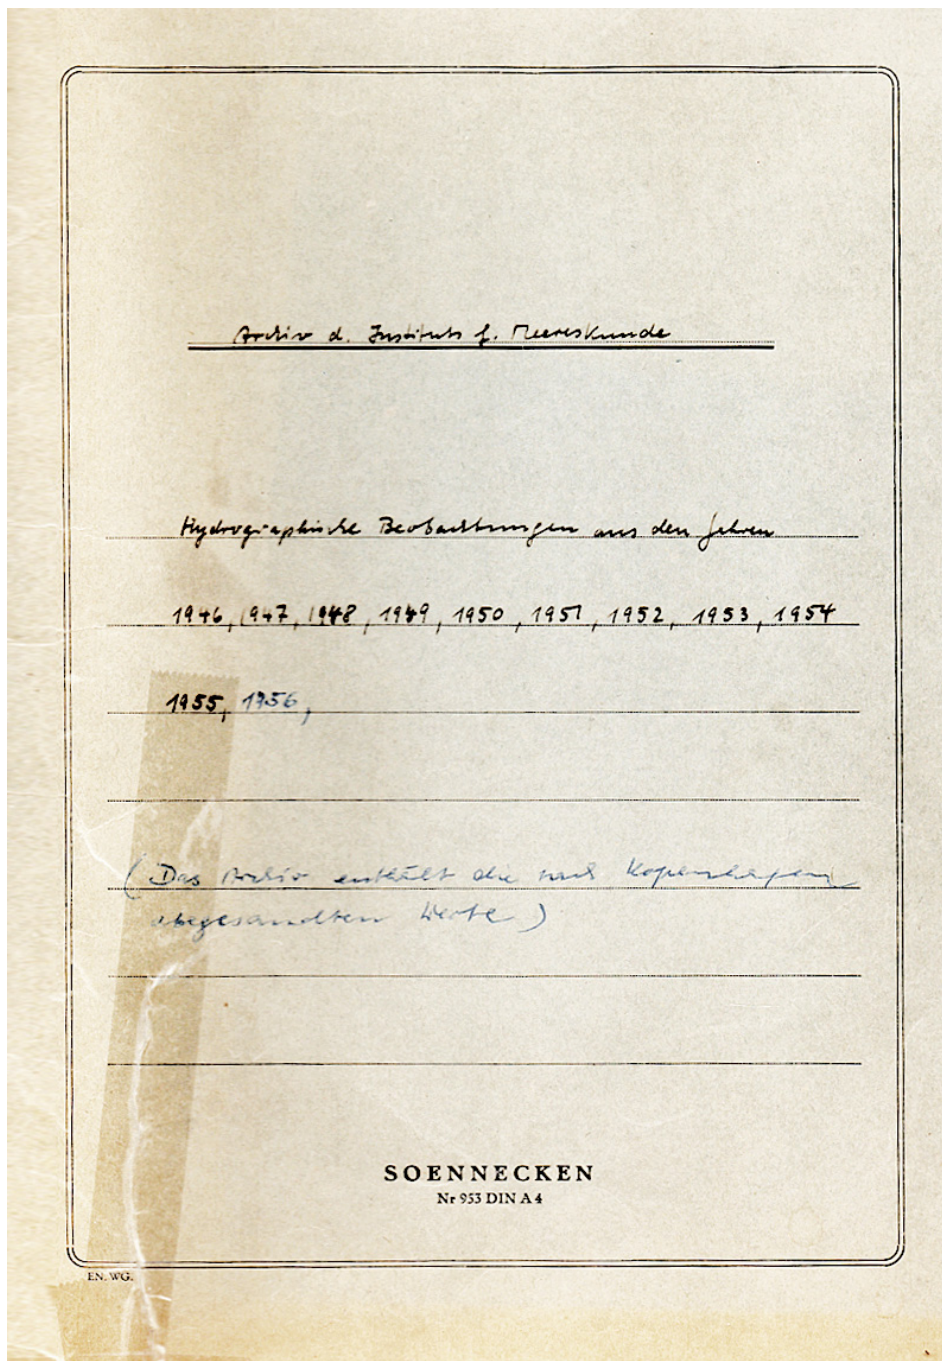 Archiv d. Instituts f. Meereskunde
Hydrographische Beobachtungen aus den Jahren
1946, 1947, 1948, 1949, 1950, 1951, 1952, 1953, 1954
1955, 1956,
(Das Archiv enthält die nach Kopenhagen
abgesandten Werte)
SOENNECKEN
Nr 953 DIN A 4
EN. WG.